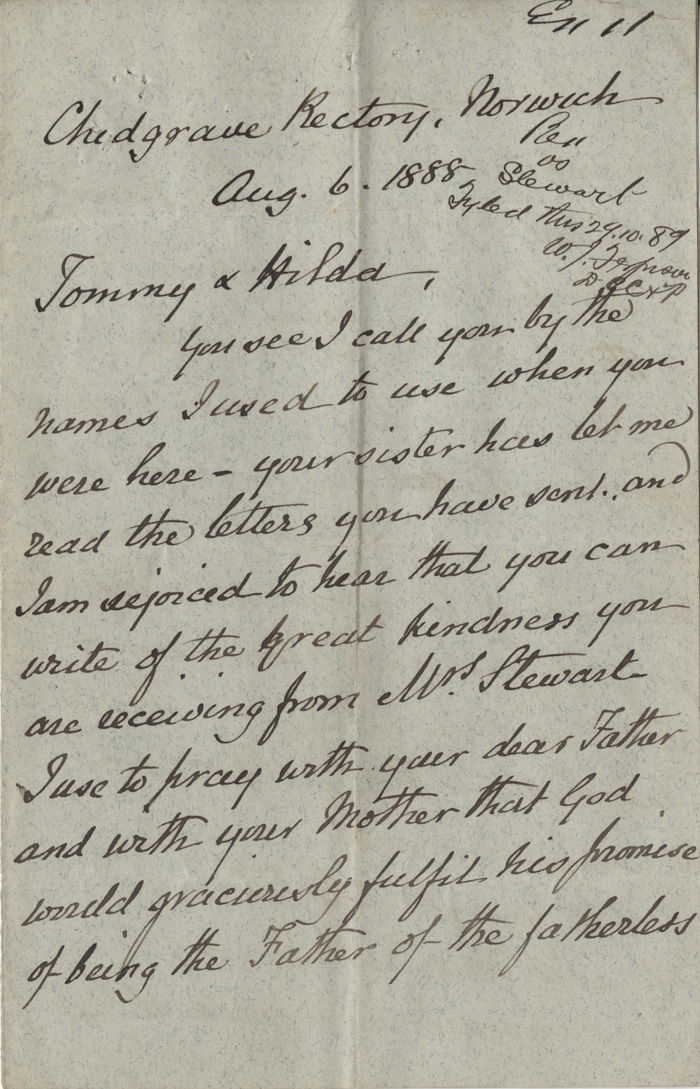 Chedgrave Rectory, Norwich
Aug. 6. 1888
Stewart
Fyled this 29.10.89
W. J.
Tommy & Hilda,
You see I call you by the
names I used to use when you
were here - your sister has let me
read the letters you have sent, and
I am rejoiced to hear that you can
write of the great kindness you
are receiving from Mrs. Stewart
I use to pray with your dear Father
and with your Mother that God
would graciously fulfil his promise
of being the Father of the fatherless